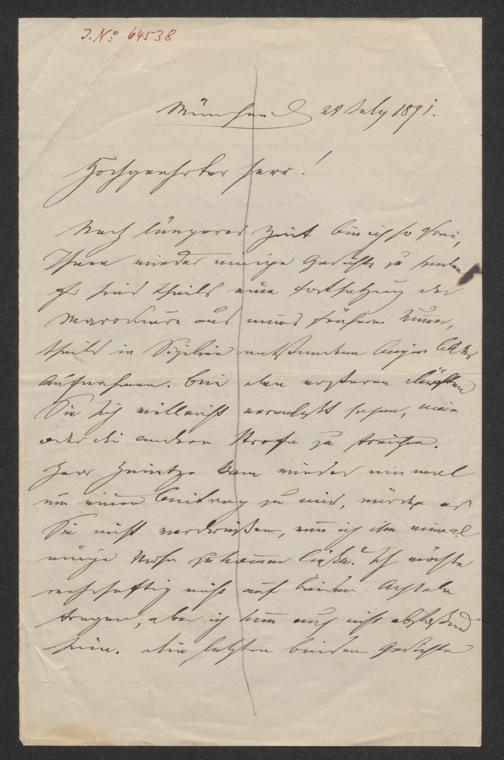 J. No 64538
München 24 July 1891.
Hochgeehrter Herr!
Nach längerer Zeit bin ich so frei,
Ihnen wieder einige Gedichte zu senden
es sind theils eine Fortsetzung der
aus meiner früheren
theils in Sizilien
Aufnahmen. Bei den ersteren dürften
Sie sich vielleicht veranlaßt sehen, eine
oder die andere Strofe zu streichen.
Herr Heintze kam wieder einmal
um einen Beitrag zu mir, würde es
Sie nicht verdrießen, wenn ich ihm einmal
einige Verse zukommen ließe? Ich möchte
nicht auf beiden Achseln
tragen, aber ich kann auch nicht abstoßend
sein. Die letzten beiden Gedichte